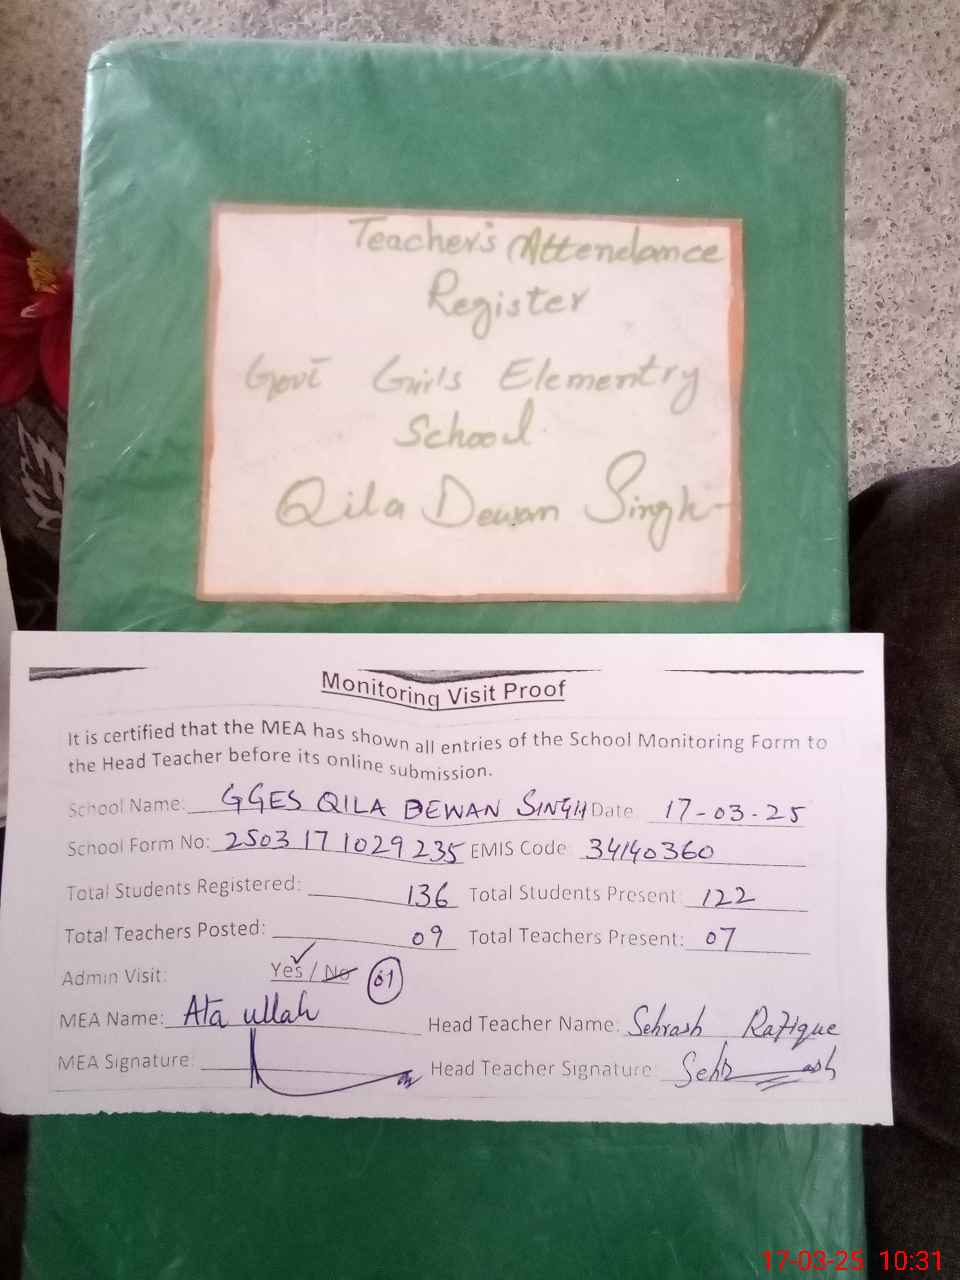 Teacher's Attendance
Register
Govt Girls Elementry
School
Qila Dewan Singh
Monitoring Visit Proof
It is certified that the MEA has shown all entries of the School Monitoring Form to
the Head Teacher before its online submission.
School Name: GGES QILA DEWAN SINGH Date 17-03-25
School Form No: 2503171029235 EMIS Code: 34140360
Total Students Registered: 136 Total Students Present: 122
Total Teachers Posted: 09 Total Teachers Present: 07
Admin Visit: Yes / No 01
MEA Name: Ata ullah Head Teacher Name: Sehrash Rafique
MEA Signature: Head Teacher Signature: Sehr ash
17-03-25 10:31